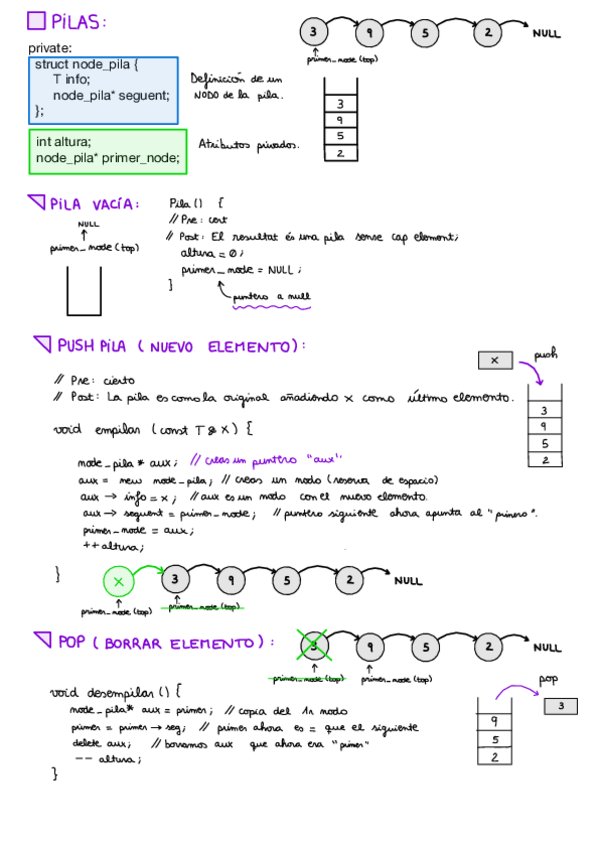 PILAS:
3 9 5 2 NULL
primer_node (top)
private:
struct node_pila {
T info;
node_pila* seguent;
};
Definición de un
NODO de la pila.
3
9
5
2
int altura;
node_pila* primer_node;
Atributos privados.
PILA VACÍA:
NULL
primer_node (top)
Pila () {
// Pre: cert
// Post: El resultat és una pila sense cap element;
altura = 0;
primer_node = NULL;
}
puntero a null
PUSH PILA ( NUEVO ELEMENTO ):
x
push
3
9
5
2
// Pre: cierto
// Post: La pila es como la original añadiendo x como último elemento.
void empilar (const T & x) {
node_pila * aux; // creas un puntero "aux"
aux = new node_pila; // creas un nodo (reserva de espacio)
aux → info = x; // aux es un nodo con el nuevo elemento.
aux → seguent = primer_node; // puntero siguiente ahora apunta al "primero".
primer_node = aux;
++ altura;
}
x 3 9 5 2 NULL
primer_node (top) primer_node (top)
POP ( BORRAR ELEMENTO ):
3 9 5 2 NULL
primer_node (top) primer_node (top)
pop
3
9
5
2
void desempilar () {
node_pila* aux = primer; // copia del 1r nodo
primer = primer → seg; // primer ahora es = que el siguiente
delete aux; // borramos aux que ahora era "primer"
-- altura;
}